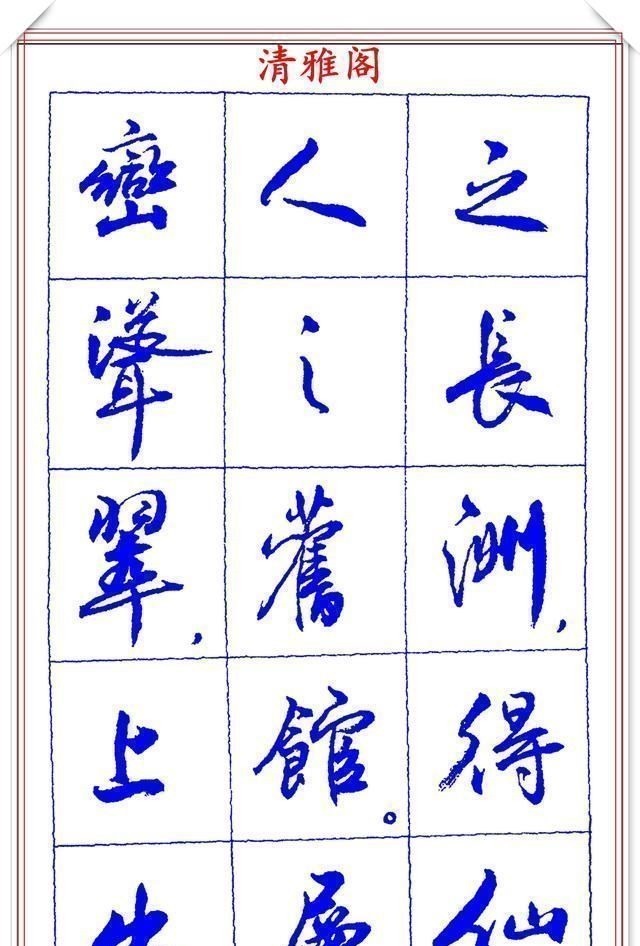 清雅阁
之長洲,得仙
人之舊館。層
巒聳翠,上出